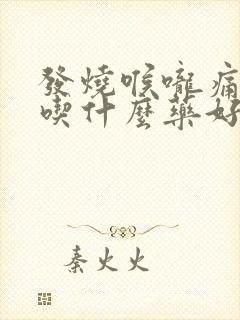 發燒喉嚨痛
喫什麼藥好
秦火火